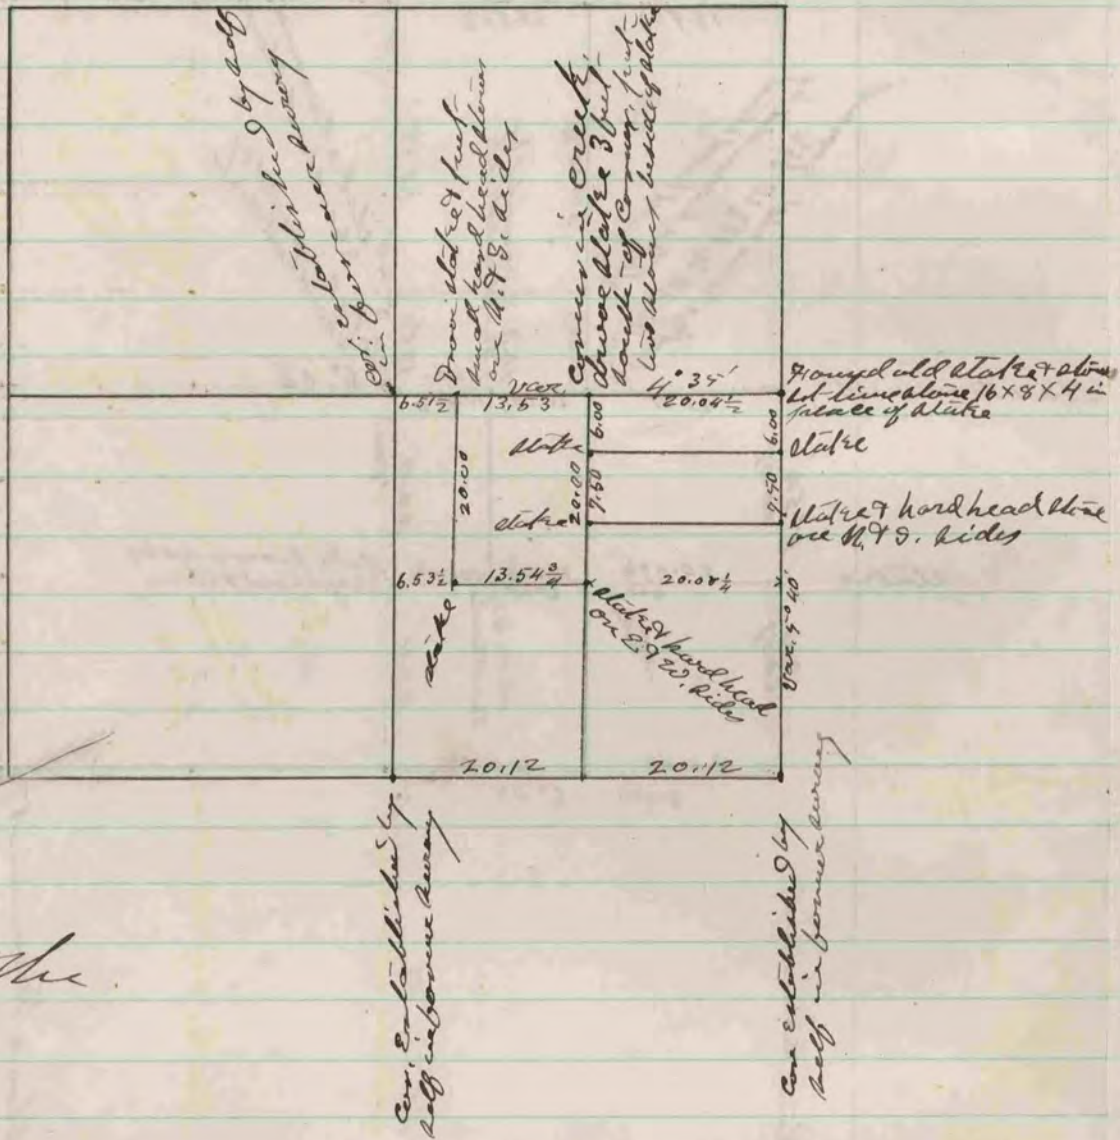 Cor. established by self
in former survey
Drove stake & put
small hard head stones
on N. & S. sides
Corner in Creek
drove stake 3 feet
south of Corner, put
two stones beside stake
Found old stake & stone
set limestone 16 x 8 x 4 in
place of stake
6.51½ 13.53 Var. 4° 35' 20.04½
stake 6.00 6.00 stake
20.00 20.00 7.50 7.50
stake
stake & hard head stone
on N. & S. sides
6.53½ 13.54¾ 20.08¼
stake
stake & hard head
on E. & W. sides
Var. 5° 40'
20.12 20.12
Cor. Established by
self in former survey
Cor established by
self in former survey
The